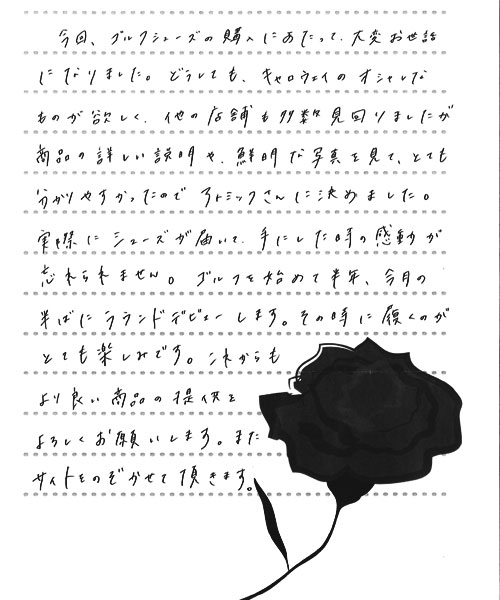 今回、ゴルフシューズの購入にあたって、大変お世話
になりました。どうしても、キャロウェイのオシャレな
ものが欲しく、他の店舗も多数見回りましたが
商品の詳しい説明や、鮮明な写真を見て、とても
分かりやすかったのでアトミックさんに決めました。
実際にシューズが届いて、手にした時の感動が
忘れられません。ゴルフを始めて半年、今月の
半ばにラウンドデビューします。その時に履くのが
とても楽しみです。これからも
より良い商品の提供を
よろしくお願いします。また
サイトをのぞかせて頂きます。